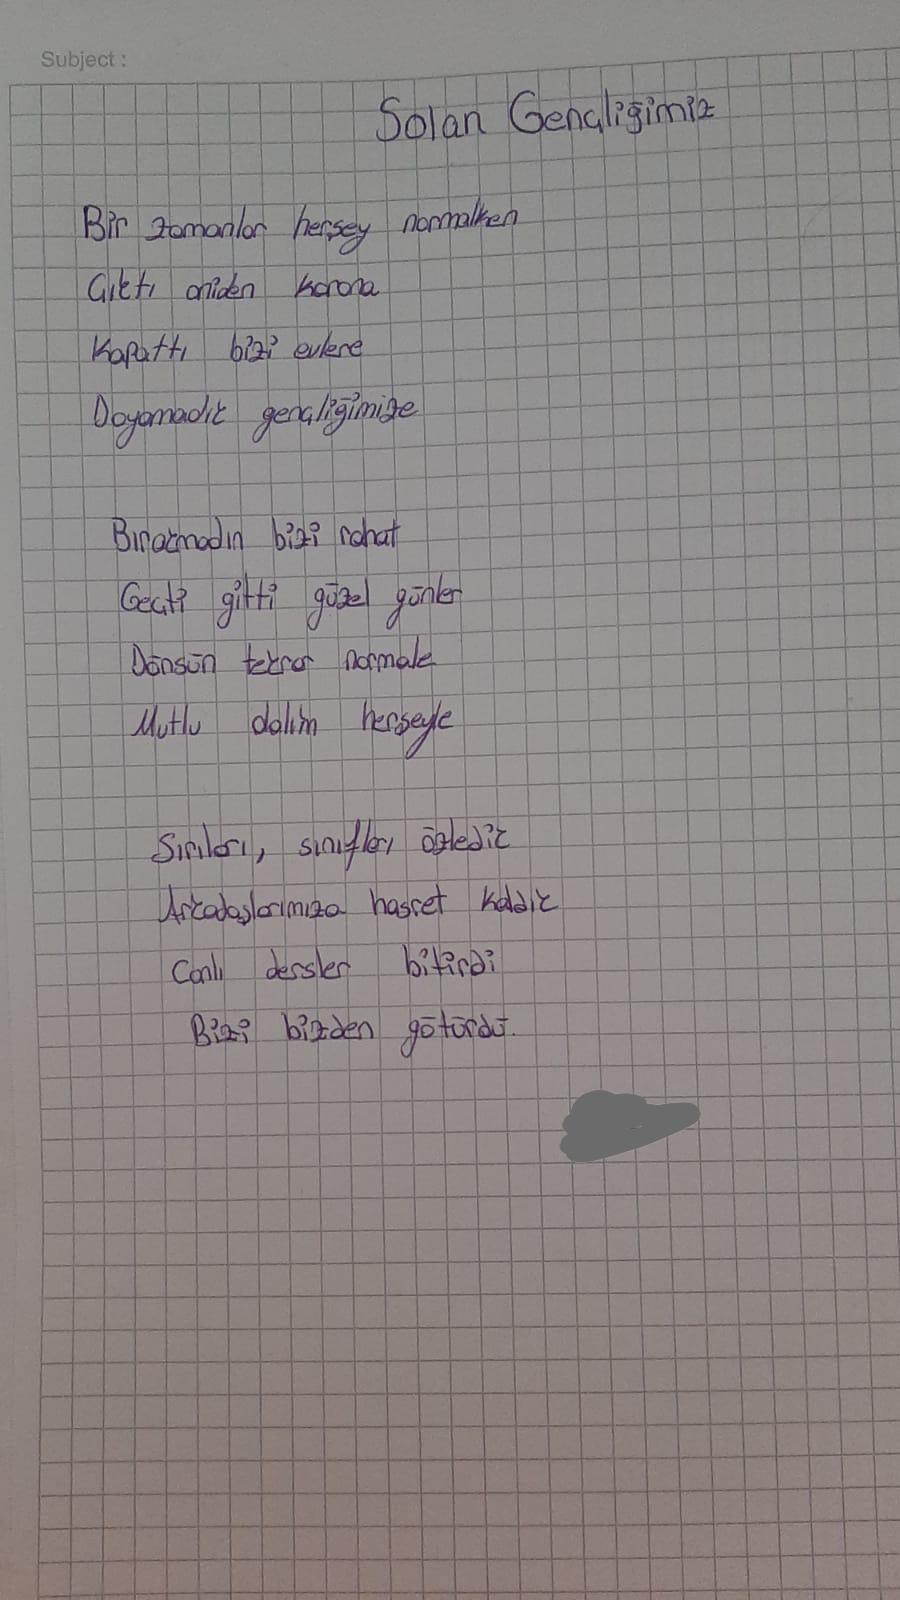 Subject :
Solan Gençliğimiz
Bir zamanlar herşey normalken
Çıktı aniden korona
Kapattı bizi evlere
Doyamadık gençliğimize
Bırakmadın bizi rahat
Geçti gitti güzel günler
Dönsün tekrar normale
Mutlu dalım herşeyle
Sıraları, sınıfları özledik
Arkadaşlarımıza hasret kaldık
Canlı dersler bitirdi
Bizi bizden götürdü.